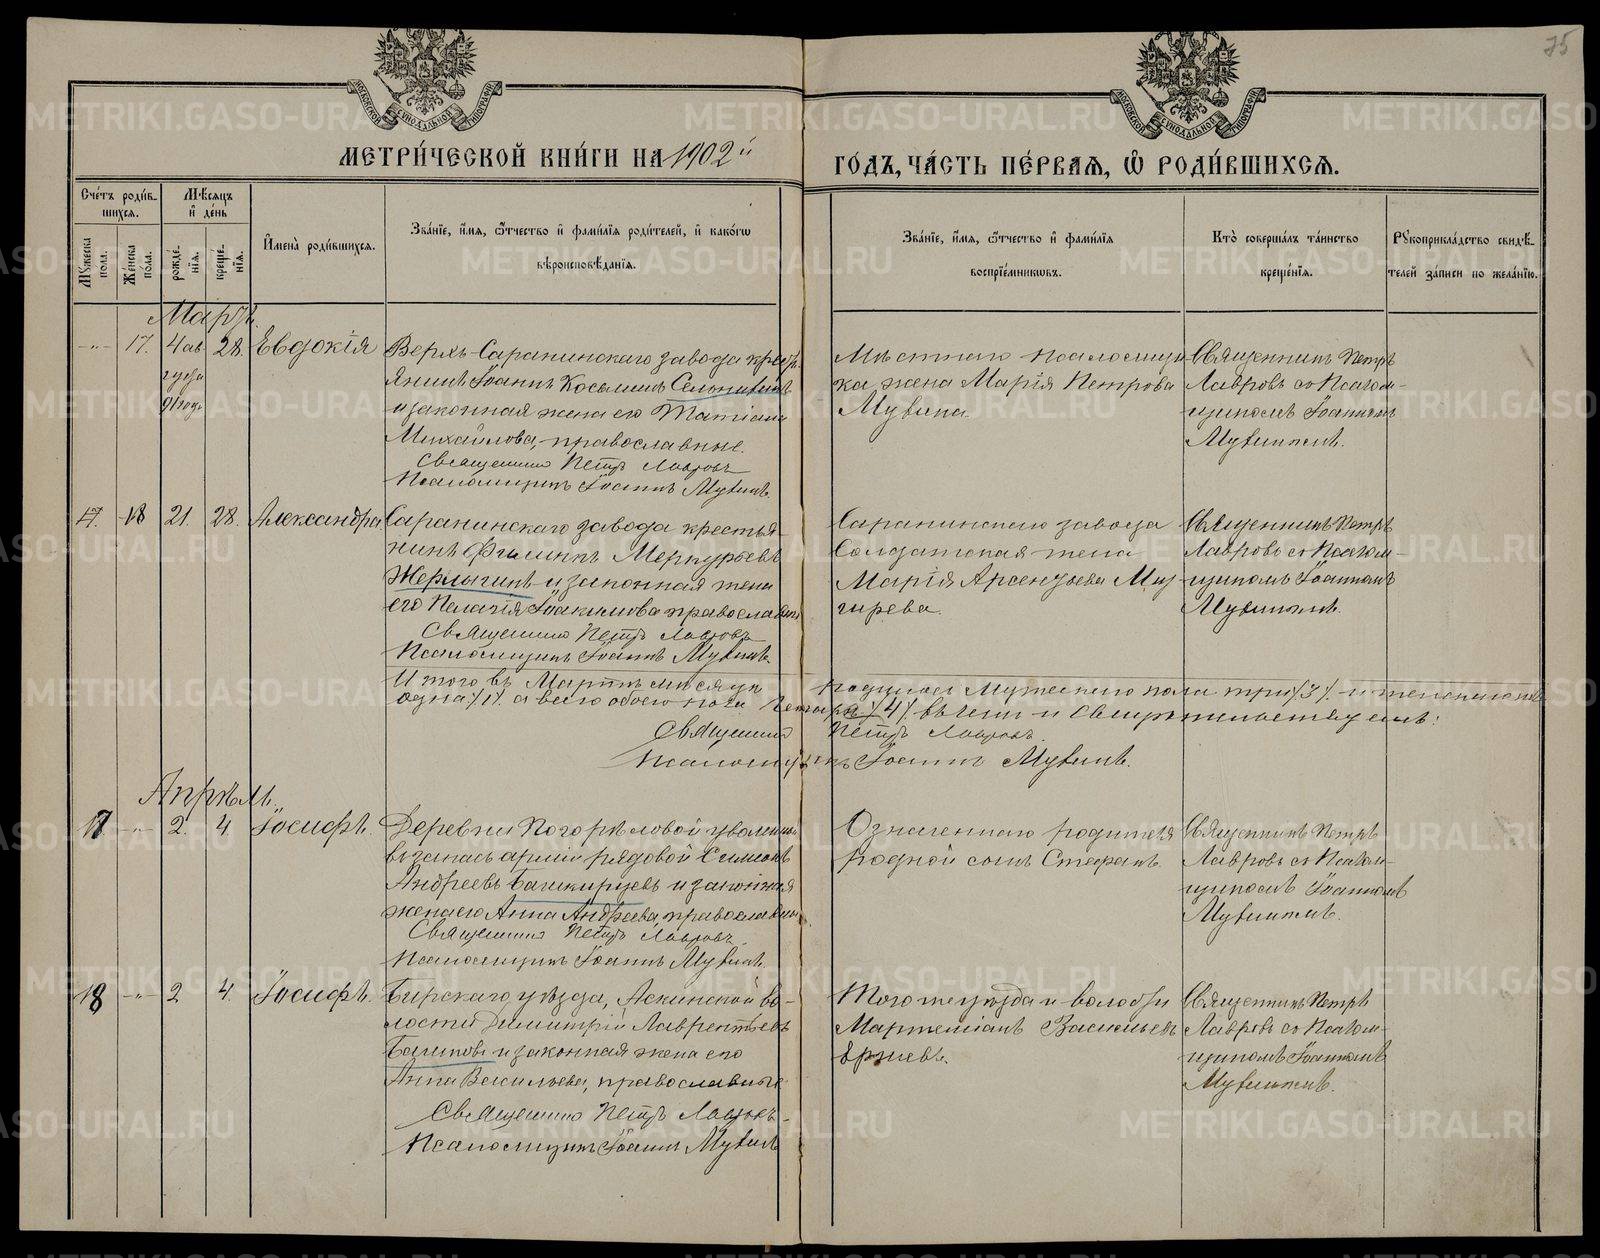 75
МЕТРИ́ЧЕСКОЙ КНИ́ГИ НА 1902й ГО́ДЪ, ЧА́СТЬ ПЕ́РВАЯ, Ѡ РОДИ́ВШИХСЯ.
Сче́тъ роди́в-
шихся.
Мѣ́сяцъ
и҆ де́нь
И҆мена̀ роди́вшихся.
Зва́нїе, и҆́мя, ѻ҆́тчество и҆ фами́лїя роди́телей, и҆ како́гѡ
вѣроисповѣ́данїя.
Зва́нїе, и҆́мя, ѻ҆́тчество и҆ фами́лїя
воспрїе́мникѡвъ.
Кто̀ соверша́лъ та́инство
креще́нїя.
Рꙋкоприкла́дство свидѣ́-
телей за́писи по жела́нїю.
Мꙋ́жеска
пола.
Же́нска
пола.
рожде́-
нїя.
креще́-
нїя.
Мартъ.
-"- 17. 4 28. Евдокія
Верхъ-Саранинскаго завода крест
янинъ Іоаннъ Косьминъ
и законная жена его Татіана
Михайлова, православные.
Священникъ Петръ Лавровъ
Псаломщикъ Іоаннъ Мувинъ.
Мѣстнаго псаломщи
ка жена Марія Петрова
Мувина.
Священникъ Петръ
Лавровъ съ Псалом-
щикомъ Іоанномъ
Мувинымъ.
17. 18 21. 28. Александра
Саранинскаго завода крестья-
нинъ Филиппъ Меркурьевъ
Жерлыгинъ и законная жена
его Пелагія Іоакимова православны
Священникъ Петръ Лавровъ
Псаломщикъ Іоаннъ Мувинъ.
Саранинскаго завода
Солдатская жена
Марія Арсеньева
гирева.
Священникъ Петръ
Лавровъ съ Псалом-
щикомъ Іоанномъ
Мувинымъ.
Итого въ Мартѣ мѣсяцѣ родилось мужескаго пола три /3/. и женскаго
одна /1/. а всего обоего пола четыре /4/.
Священникъ Петръ Лавровъ.
Псаломщикъ Іоаннъ Мувинъ.
Апрѣль.
17. -"- 2. 4. Іосифъ.
Деревни Погорѣловой уволенный
въ запасъ арміи рядовой Симонъ
Андреевъ Башкирцевъ и законная
жена его Анна Андреева православны
Священникъ Петръ Лавровъ.
Псаломщикъ Іоаннъ Мувинъ.
Означеннаго родителя
родной сынъ Стефанъ.
Священникъ Петръ
Лавровъ съ Псалом-
щикомъ Іоанномъ
Мувинымъ.
18 -"- 2 4. Іосифъ.
Бирскаго уѣзда, Аскинской во-
лости Димитрій Лаврентьевъ
и законная жена его
Анна Васильева, православные
Священникъ Петръ Лавровъ-
Псаломщикъ Іоаннъ Мувинъ
Того же уѣзда и волости
Мартеміанъ Васильевъ
Священникъ Петръ
Лавровъ съ Псалом-
щикомъ Іоанномъ
Мувинымъ.
METRIKI.GASO-URAL.RU